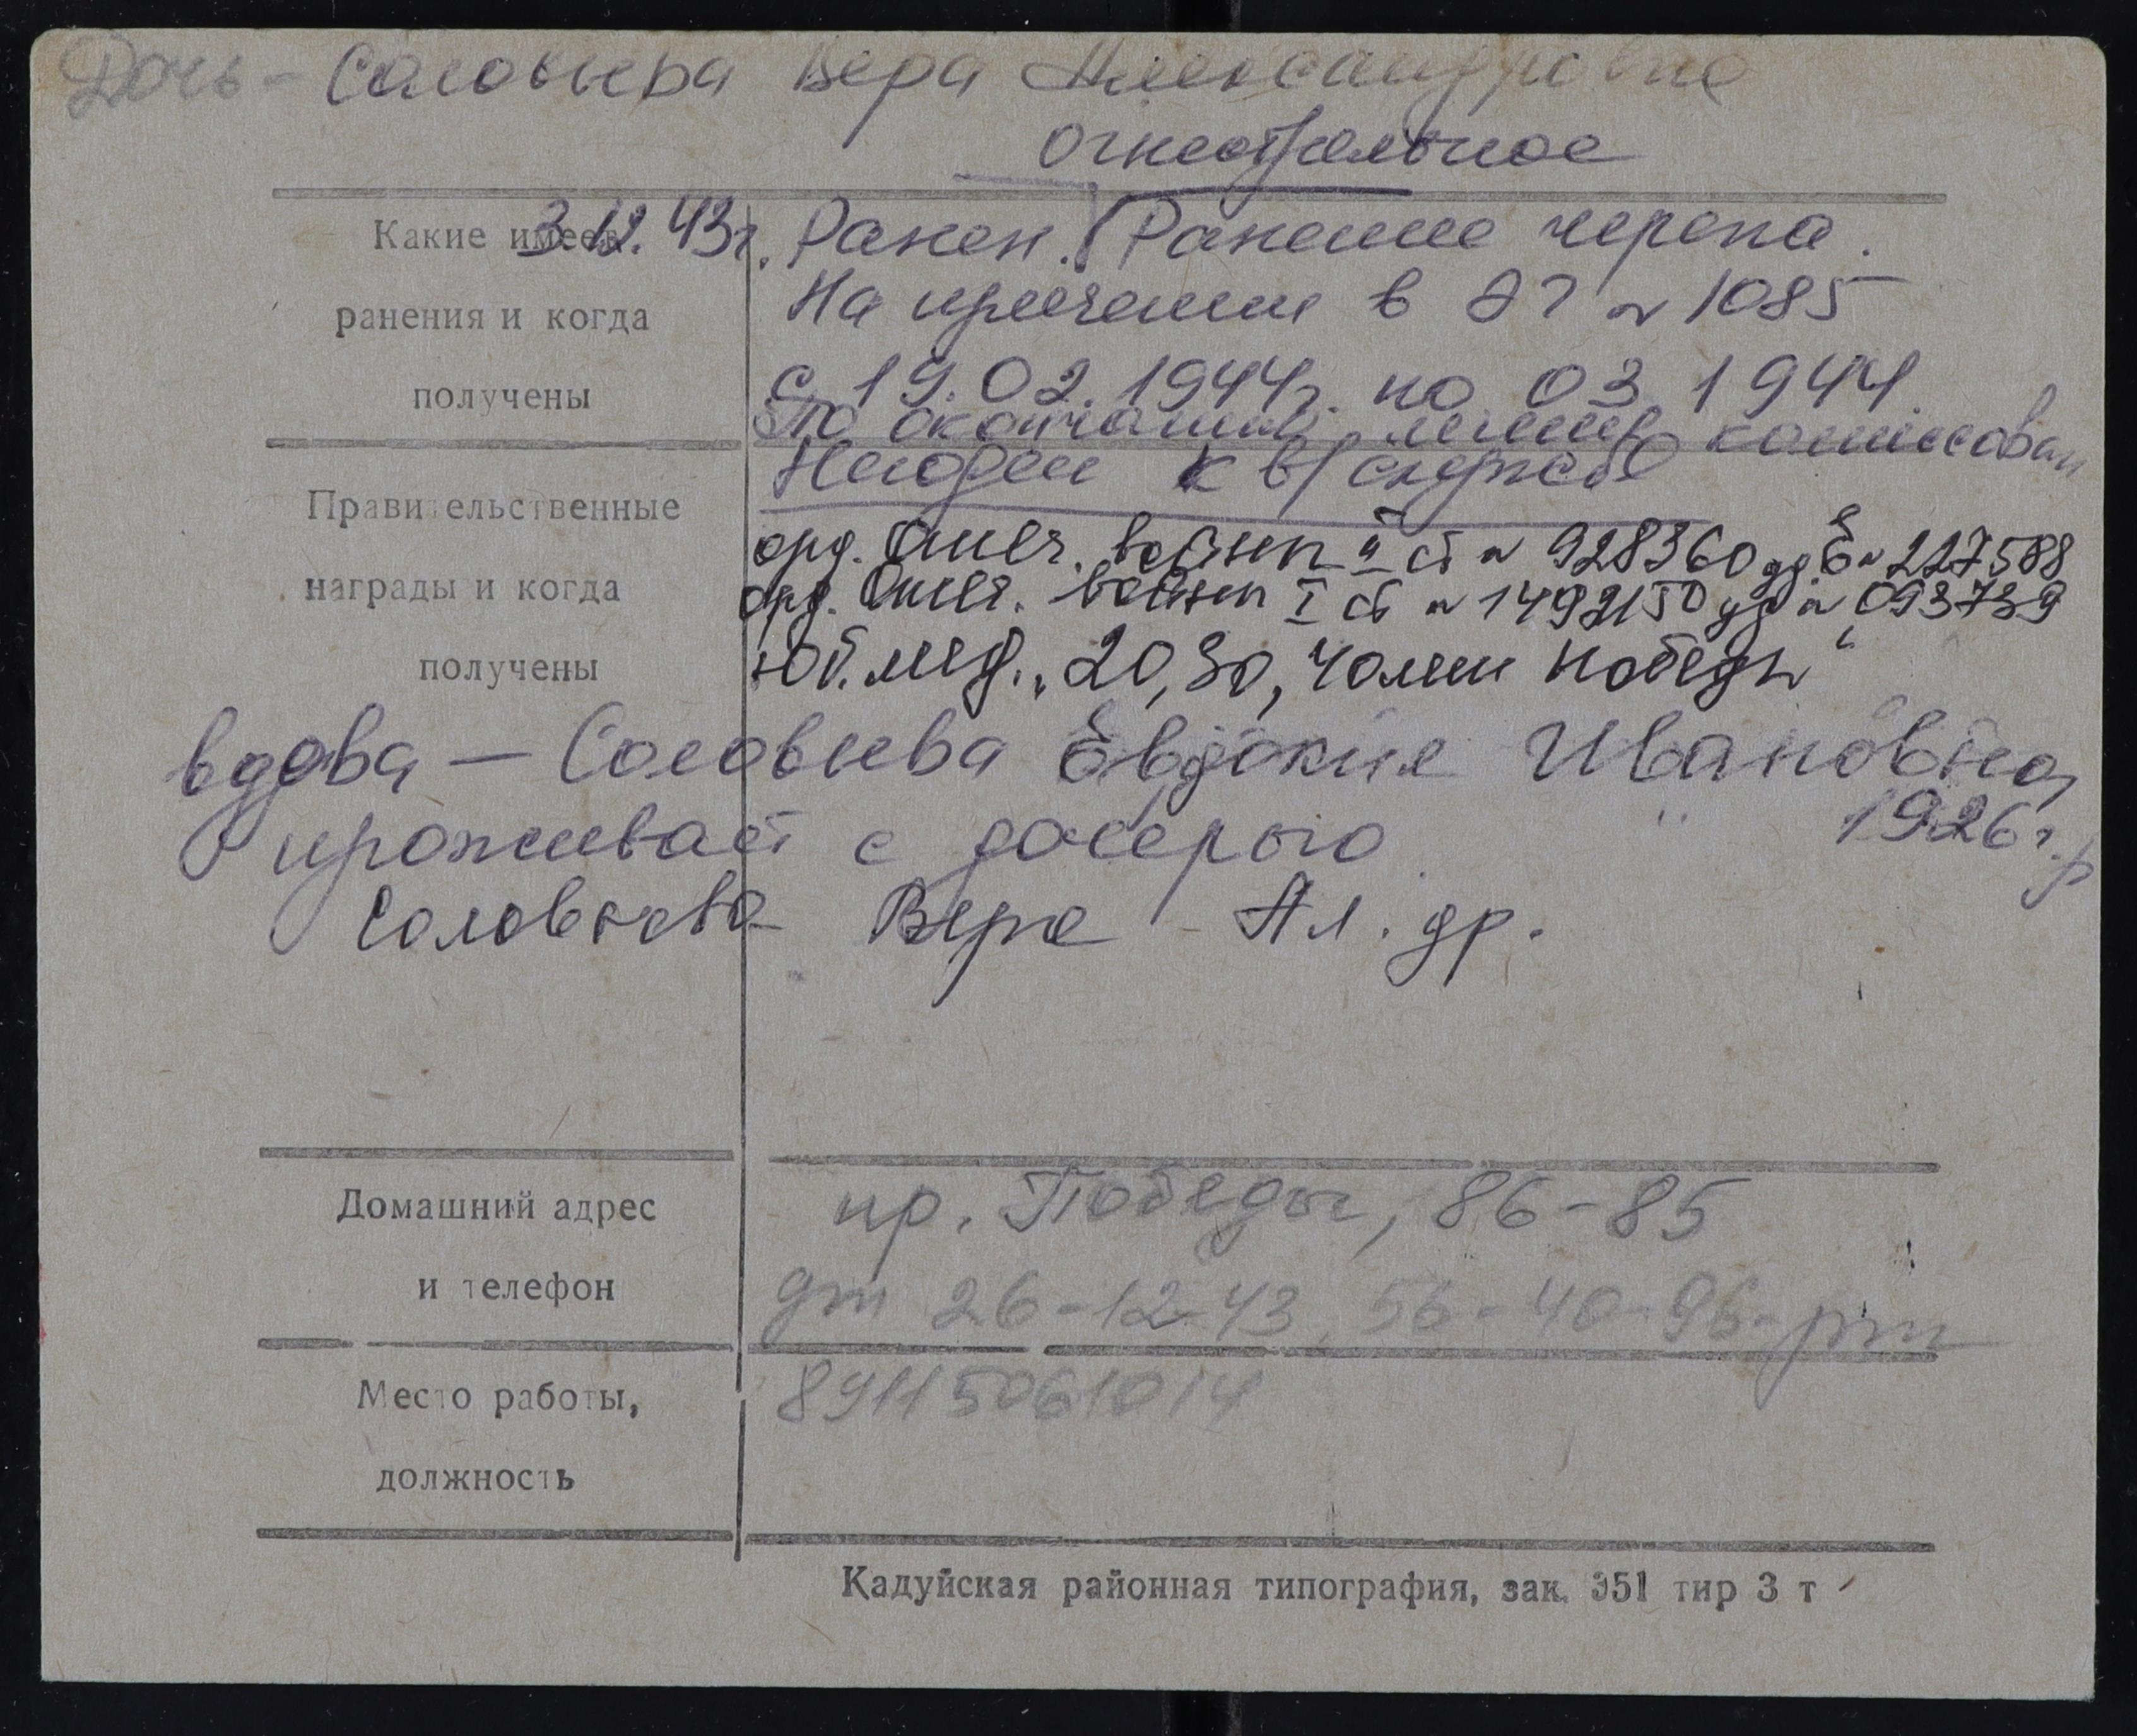 Дочь - Соловьева Вера Александровна
огнестрельное
Какие имеет 3.12.43г. Ранен. Ранение черепа.
ранения и когда На излечении в ЭГ № 1085
получены с 19.02.1944г. по 03.1944.
По окончании лечения комиссован
Негоден к в/службе
Правительственные орд. Отеч. войны II ст № 928360 уд. Е № 227588
награды и когда орд. Отеч. войны I ст № 1492150 уд № 093739
получены Юб. мед. „20, 30, 40 лет Победы“
вдова — Соловьева Евдокия Ивановна,
проживает с дочерью 1926 г.р
Соловьева Вера Ал.др.
Домашний адрес пр. Победы, 86-85
и телефон дт 26-12-43, 56-40-96-рт
Место работы, 89115061014
должность
Кадуйская районная типография, зак. 351 тир 3 т